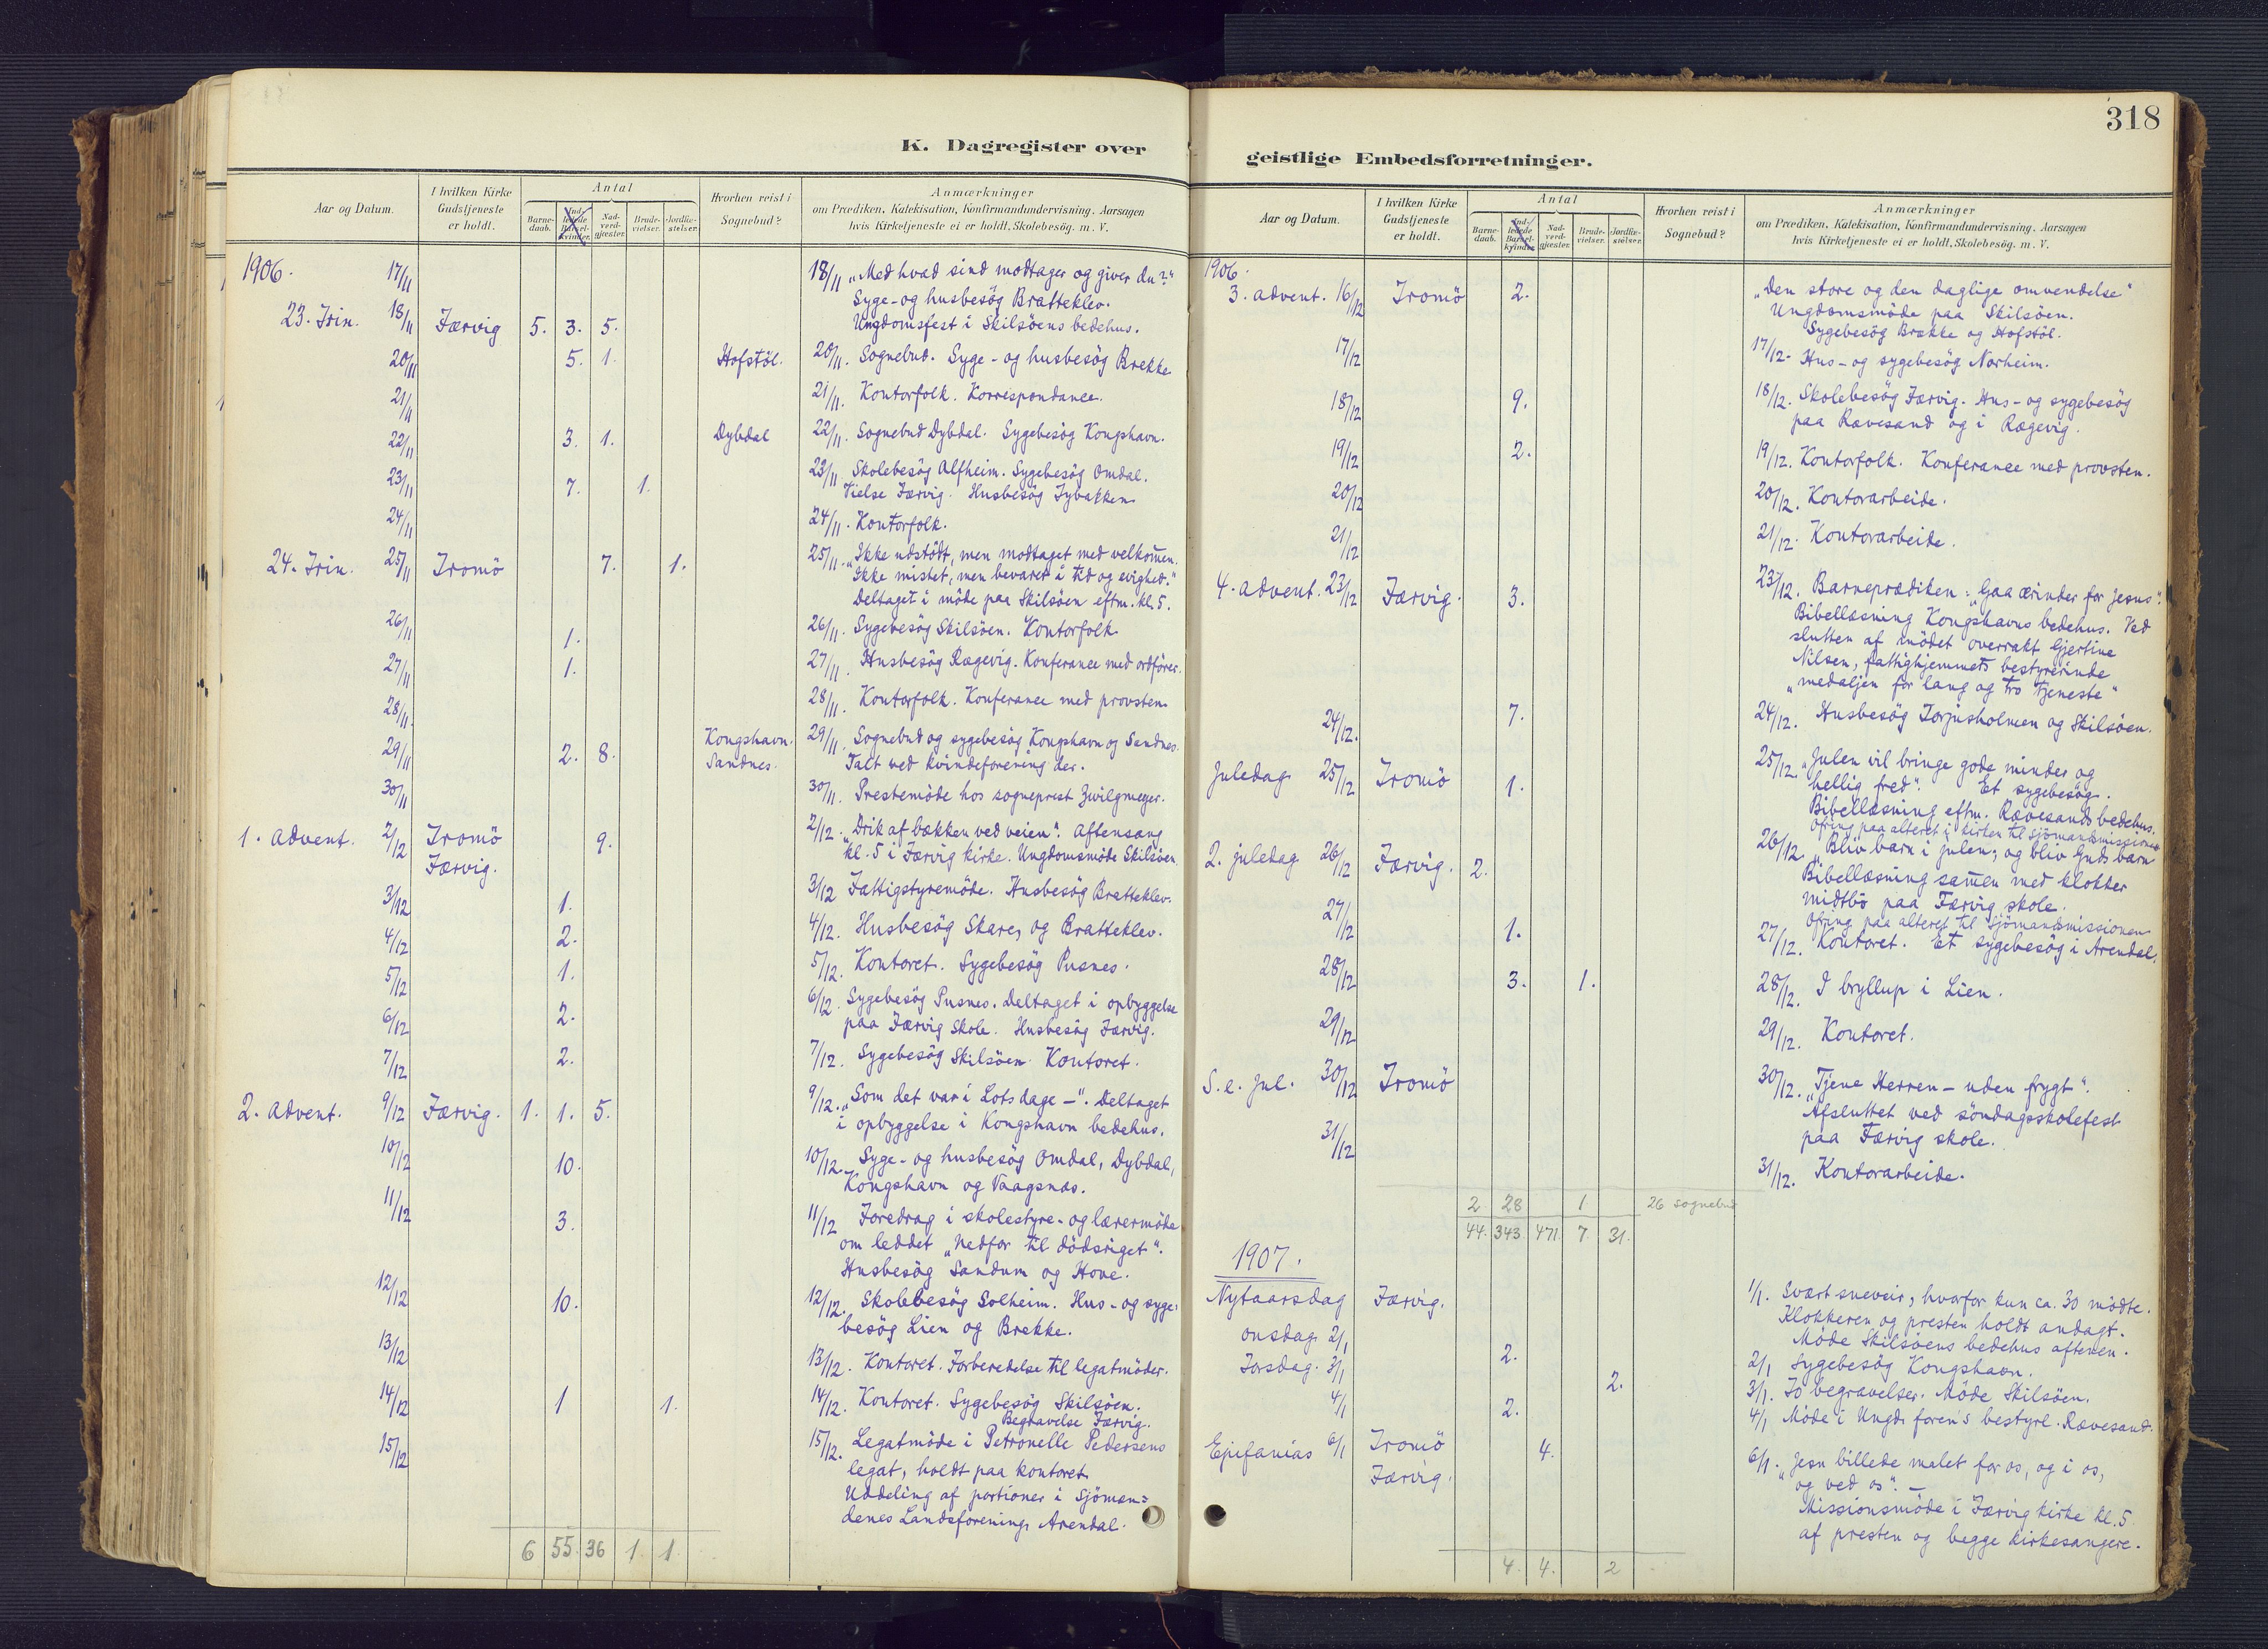 318
K. Dagregister over
geistlige Embedsforretninger.
Aar og Datum.
I hvilken Kirke
Gudstjeneste
er holdt.
Antal
Barne-
daab.
Ind-
ledede
Barsel-
kvinder.
Nad-
verd-
gjæster.
Brude-
vielser.
Jordfæ-
stelser.
Hvorhen reist i
Sognebud?
Anmærkninger
om Prædiken, Katekisation, Konfirmandundervisning. Aarsagen
hvis Kirketjeneste ei er holdt. Skolebesøg. m. V.
1906. 17/11
18/11 „Med hvad sind modtager og giver du?"
Syge- og husbesög Bratteklev.
23. Trin. 18/11 Færvig 5. 3. 5. Ungdomsfest i Skilsöens bedehus.
20/11 5. 1. Hofstöl. 20/11. Sognebud. Syge- og husbesög Brekke
21/11 21/11. Kontorfolk. Korrespondance.
22/11 3. 1. Dybdal 22/11. Sognebud Dybdal. Sygebesög Kongshavn.
23/11 7. 1. 23/11 Skolebesög Alfheim. Sygebesög Omdal.
Vielse Færvig. Husbesög Tybakken
24/11 24/11. Kontorfolk.
24. Trin. 25/11 Tromö 7. 1. 25/11. „Ikke udstödt, men modtaget med velkom̄en.
Ikke mistet, men bevaret i tid og evighed."
Deltaget i möde paa Skilsöen eftm. kl. 5.
26/11 1. 26/11. Sygebesög Skilsöen. Kontorfolk
27/11 1. 27/11. Husbesög Rægevig. Konferance med ordförer.
28/11. 28/11. Kontorfolk. Konferance med provsten
29/11 2. 8. Kongshavn. Sandnes. 29/11. Sognebud og sygebesög Kongshavn og Sandnes.
Talt ved kvindeforening der.
30/11 30/11. Prestemöde hos sogneprest Zwilgmeyer.
1. Advent. 2/12 Tromö 9. 2/12. „Drik af bækken ved veien". Aftensang
Færvig. kl. 5 i Færvig kirke. Ungdomsmöde Skilsöen
3/12 1. 3/12 Fattigstyremöde. Husbesög Bratteklev.
4/12 2. 4/12. Husbesög Skare, og Bratteklev.
5/12 1. 5/12. Kontoret. Sygebesög Pusnes.
6/12 2. 6/12. Sygebesög Pusnes. Deltaget i opbyggelse
paa Færvig Skole. Husbesög Færvig.
7/12 2. 7/12. Sygebesög Skilsöen. Kontoret.
2. Advent. 9/12 Færvig. 1. 1. 5. 9/12. „Som det var i Lots dage –". Deltaget
i opbyggelse i Kongshavn bedehus.
10/12 10. 10/12. Syge- og husbesög Omdal, Dybdal,
Kongshavn og Vaagsnæs.
11/12 3. 11/12 Foredrag i skolestyre- og lærermöde
om leddet „Nedfor til dödsriget".
Husbesög Sandum og Hove.
12/12 10. 12/12. Skolebesög Solheim. Hus- og syge-
besög Lien og Brekke.
13/12 13/12. Kontoret. Forberedelse til legatmöder.
14/12 1 1. 14/12. Kontoret. Sygebesög Skilsöen.
Begravelse Færvig.
15/12 15/12. Legatmöde i Petronelle Pedersens
legat, holdt paa kontoret.
Uddeling af portioner i Sjömæn=
denes Landsforening, Arendal.
6 55. 36 1. 1.
Aar og Datum.
I hvilken Kirke
Gudstjeneste
er holdt.
Antal
Barne-
daab.
Ind-
ledede
Barsel-
kvinder.
Nad-
verd-
gjæster.
Brude-
vielser.
Jordfæ-
stelser.
Hvorhen reist i
Sognebud?
Anmærkninger
om Prædiken, Katekisation, Konfirmandundervisning. Aarsagen
hvis Kirketjeneste ei er holdt. Skolebesøg. m. V.
1906.
3. advent. 16/12 Tromö 2. „Den store og den daglige omvendelse"
Ungdomsmöde paa Skilsöen.
Sygebesög Brække og Hofstöl.
17/12 17/12. Hus- og sygebesög Norheim.
18/12 9. 18/12. Skolebesög Færvig. Hus- og sygebesög
paa Rævesand og i Rægevig.
19/12 2. 19/12. Kontorfolk. Konferance med provsten.
20/12 20/12. Kontorarbeide.
21/12 21/12. Kontorarbeide.
4. advent. 23/12 Færvig. 3. 23/12. Barneprædiken: „Gaa ærinder for Jesus".
Bibellæsning Kongshavns bedehus. Ved
slutten af mödet overrakt Gjertine
Nilsen, fattighjemmets bestyrerinde
„medaljen for lang og tro tjeneste"
24/12. 7. 24/12. Husbesög Torjusholmen og Skilsöen.
Juledag 25/12 Tromö 1. 25/12. „Julen vil bringe gode minder og
hellig fred". Et sygebesög.
Bibellæsning eftm. Rævesands bedehus.
Ofring paa alteret i kirken til Sjömandsmissionen
2. juledag 26/12 Færvig. 2. 26/12. „Bliv barn i julen, og bliv Guds barn
Bibellæsning sam̄en med klokker
Midtbö paa Færvig skole.
Ofring paa alteret til Sjömandsmissionen
27/12 1. 27/12. Kontoret. Et sygebesög i Arendal.
28/12 3. 1. 28/12. I bryllup i Lien.
29/12 29/12. Kontoret.
S. e. Jul. 30/12 Tromö 30/12. „Tjene Herren – uden frygt".
Afsluttet ved söndagsskolefest
paa Færvig skole.
31/12 31/12. Kontorarbeide.
2 28 1 26 sognebud
44. 343. 471. 7 31.
1907.
Nytaarsdag Færvig. 1/1. Svært sneveir, hvorfor kun ca. 30 mödte.
Klokkeren og presten holdt andagt.
Möde Skilsöens bedehus aftenen.
onsdag 2/1 2. 2/1 Sygebesög Kongshavn.
Torsdag. 3/1 2. 3/1. To begravelser. Möde Skilsöen.
4/1 2. 4/1 Möde i Ungd. foren's bestyrl. Rævesand.
Epifanias 6/1 Tromö 4. 6/1. „Jesu billede malet for os, og i os,
Færvig. og ved os". –
Missionsmöde i Færvig kirke kl. 5
af presten og begge kirkesangere.
4. 4. 2